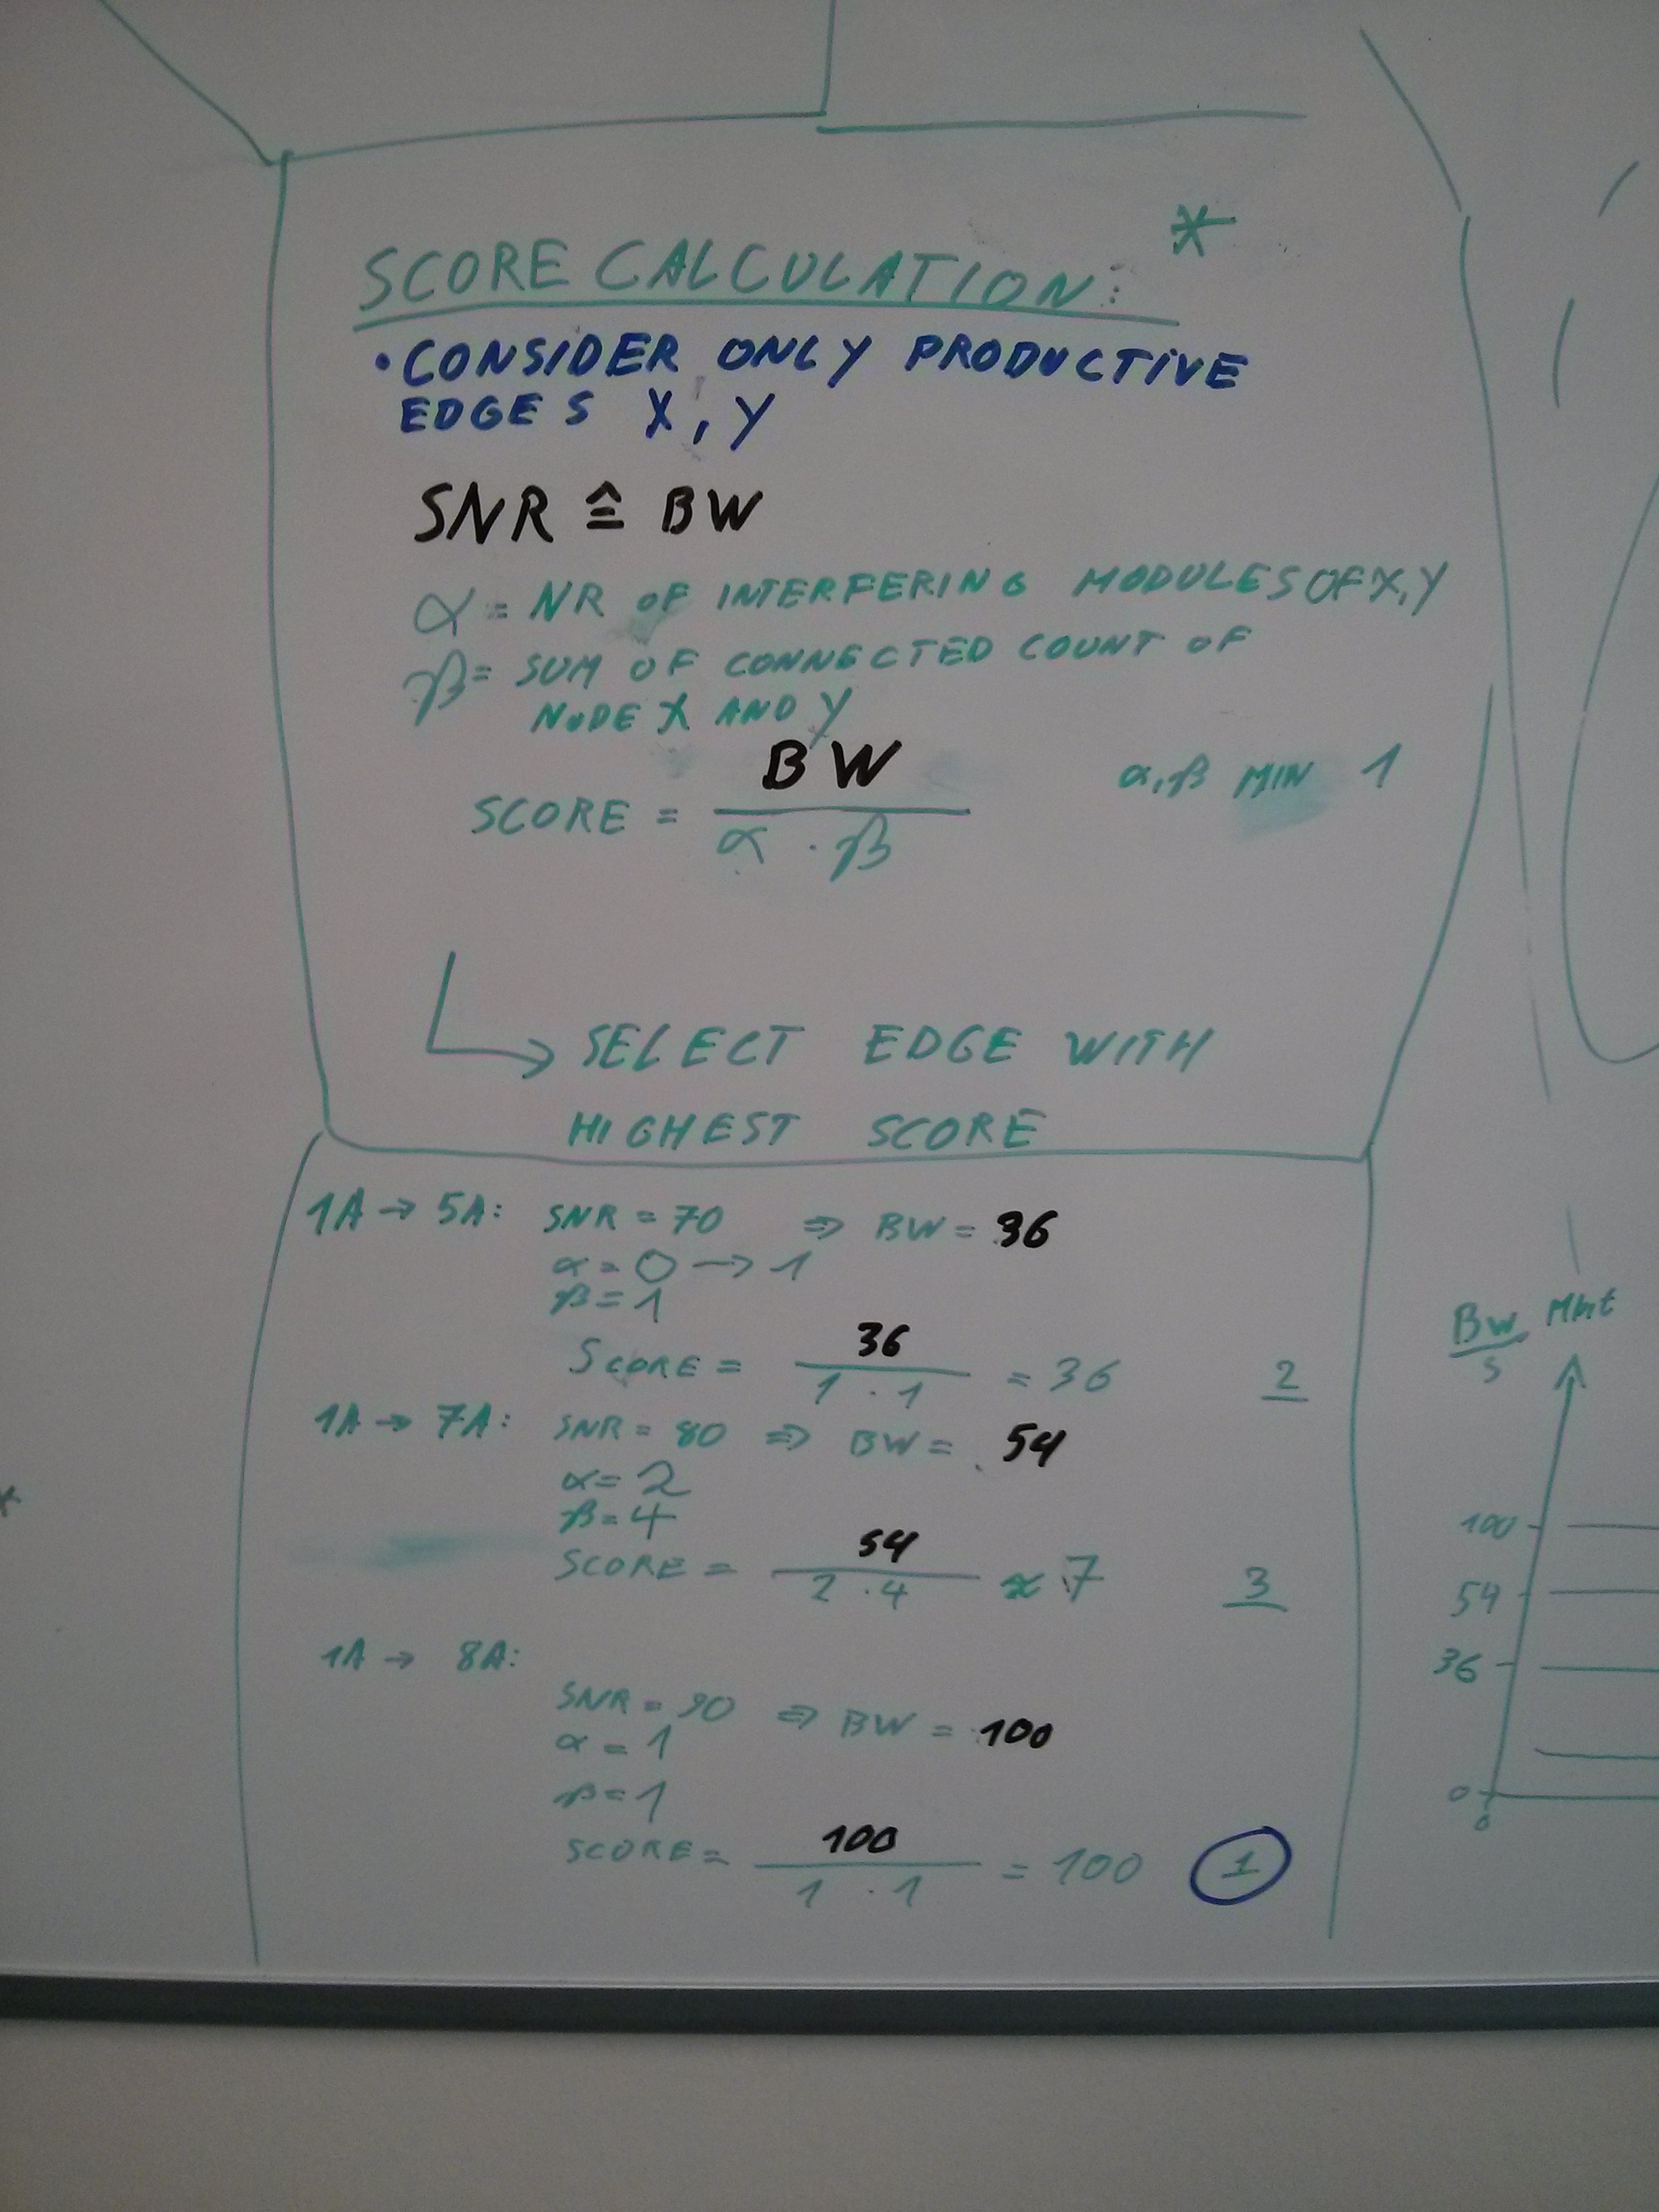 *
SCORE CALCULATION:
• CONSIDER ONLY PRODUCTIVE
EDGES X, Y
SNR ≙ BW
α = NR OF INTERFERING MODULES OF X, Y
β = SUM OF CONNECTED COUNT OF
NODE X AND Y
SCORE = BW / α · β
α, β MIN 1
↳ SELECT EDGE WITH
HIGHEST SCORE
1A → 5A: SNR = 70 ⇒ BW = 36
α = 0 → 1
β = 1
SCORE = 36 / 1 · 1 = 36 2
1A → 7A: SNR = 80 ⇒ BW = 54
α = 2
β = 4
SCORE = 54 / 2 · 4 ≈ 7 3
1A → 8A:
SNR = 90 ⇒ BW = 100
α = 1
β = 1
SCORE = 100 / 1 · 1 = 100 1
BW Mbit
s
100
54
36
0
0